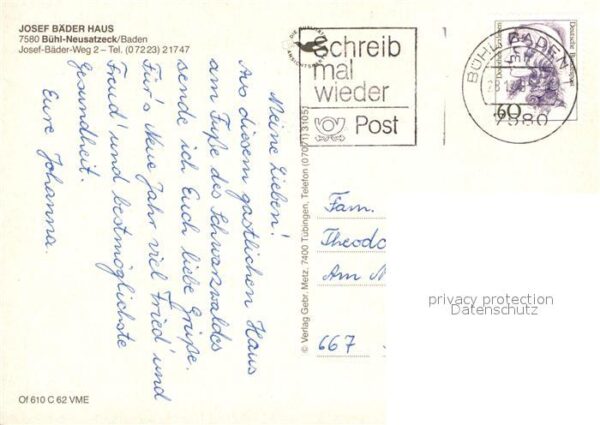 JOSEF BÄDER HAUS
7580 Bühl-Neusatzeck/Baden
Josef-Bäder-Weg 2 – Tel. (07223) 21747
Meine Lieben!
Aus diesem gastlichen Haus
am Fuße des Schwarzwaldes
sende ich Euch liebe Grüße.
Für's Neue Jahr viel Fried' und
Freud' und bestmöglichste
Gesundheit.
Eure Johanna.
Of 610 C 62 VME
© Verlag Gebr. Metz, 7400 Tübingen, Telefon (07071) 31051
Schreib
mal
wieder
Post
BÜHL, BADEN 1
7580
60
Deutsche Bundespost
Fam.
Theodo
Am
667
privacy protection
Datenschutz